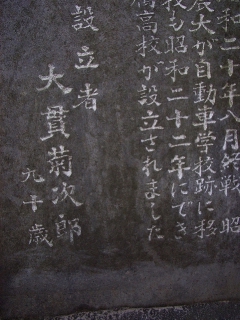 和二十年八月終戦 昭
農大が自動車学校跡に移
校も昭和二十二年にでき
高校が設立されました
設立者
大貫菊次郎
九十歳